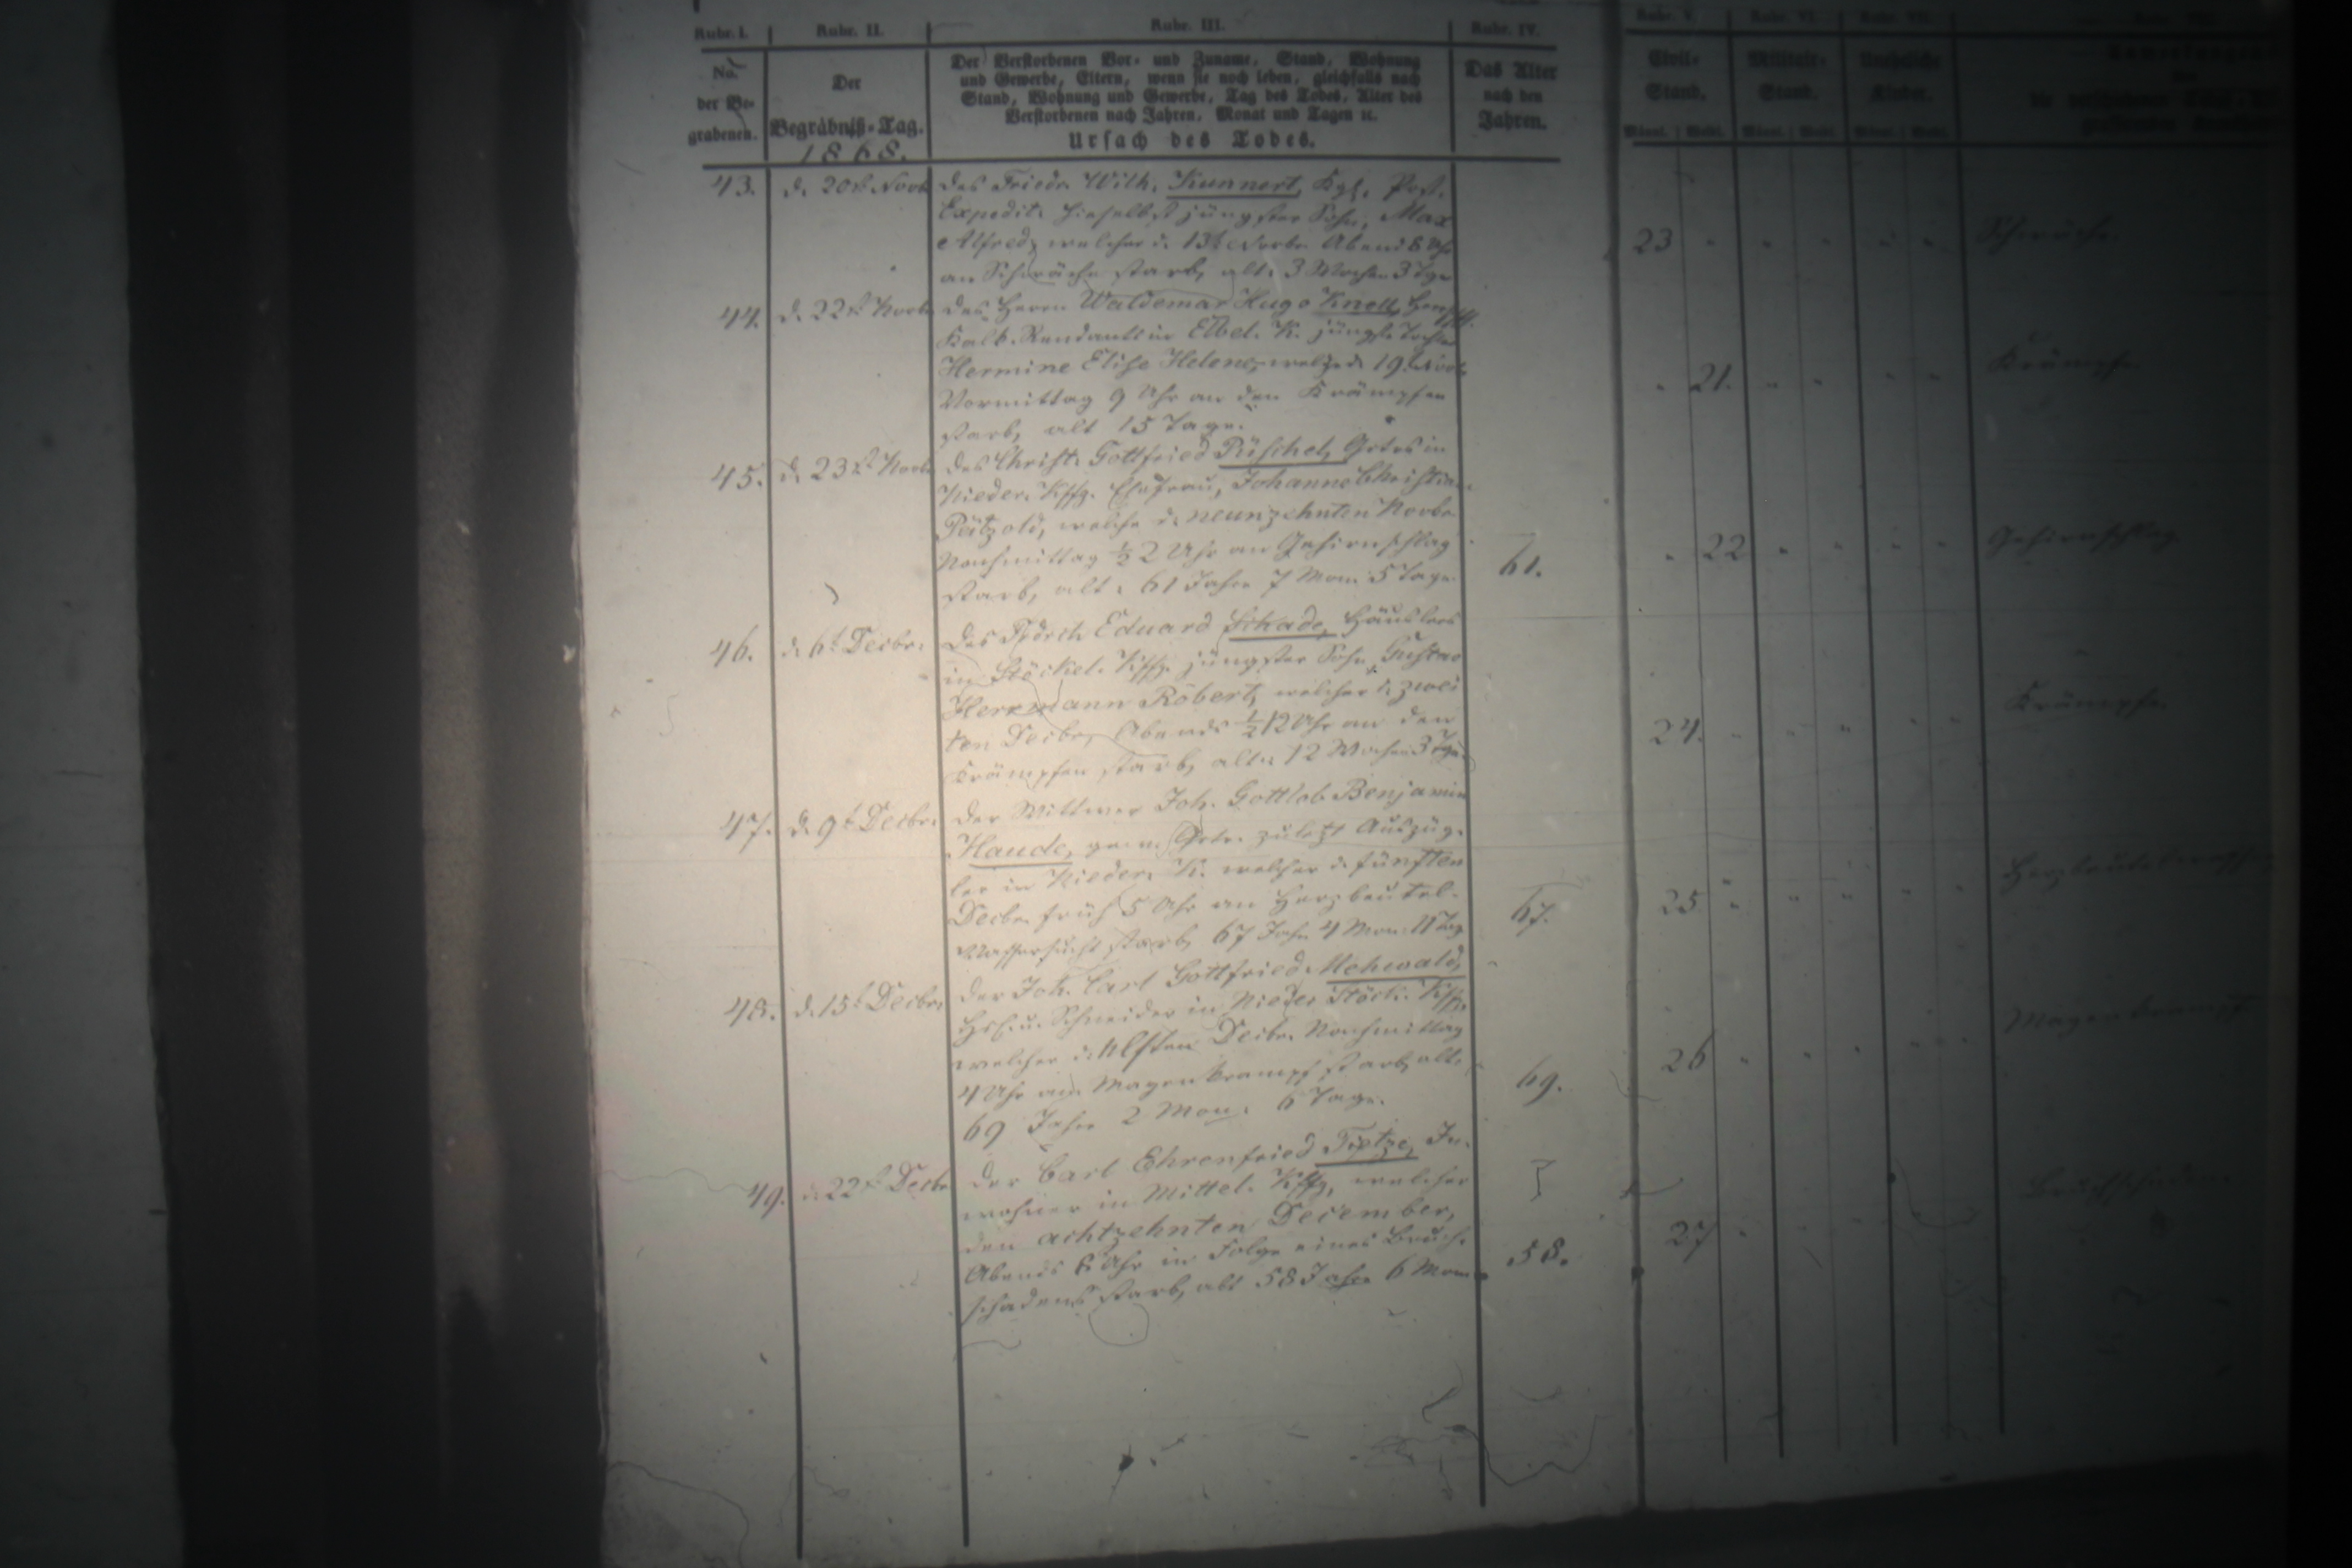 Rubr. I. Rubr. II. Rubr. III. Rubr. IV. Rubr. V. Rubr. VI. Rubr. VII.
No. der Begrabenen.
Der Begräbniß-Tag. 1868.
Der Verstorbenen Vor- und Zuname, Stand, Wohnung
und Gewerbe, Eltern, wenn sie noch leben, gleichfalls nach
Stand, Wohnung und Gewerbe, Tag des Todes, Alter des
Verstorbenen nach Jahren, Monat und Tagen ꝛc.
Ursach des Todes.
Das Alter nach den Jahren.
Civil-Stand. Militair-Stand. Uneheliche Kinder.
Männl. Weibl. Männl. Weibl. Männl. Weibl.
43. d. 20t. Novb. des Friedr. Wilh. Kunnert, Kgl. Post.
Expedit. hieselbst jüngster Sohn, Max
Alfred, welcher d. 13t. Novbr. Abend 8 Uhr 23 Schwäche
an Schwäche starb, alt. 3 Wochen 3 Tge
44. d. 22t. Novb. des Herrn Waldemar Hugo Knoll,
Kalk-Rendant in jüngste Tochter
Hermine Elise Helene, welche d. 19. Novb. 21. Krämpfe
Vormittag 9 Uhr an den Krämpfen
starb, alt 15 Tage.
45. d. 23t. Novb. des Christ. Gottfried Püschel, Grtrs in
Nieder. Kffg. Ehefrau, Johanne Christian.
Pätzold, welche d. neunzehnten Novbr.
Nachmittag ½ 2 Uhr an Gehirnschlag 22 Gehirnschlag
starb, alt. 61 Jahre 7 Mon. 5 Tage 61.
46. d. 6t. Decbr. des Eduard Schade, Häuslers
in Stöckel. Kffg. jüngster Sohn, Gustav
Herrmann Robert, welcher d. zwei
ten Decbr. Abends ½ 12 Uhr an den 24. Krämpfe
Krämpfen starb, alt. 12 Wochen 3 Tge.
47. d. 9t. Decbr. der Wittwer Joh. Gottlob Benjamin
Haude, gew. Grtr. zuletzt Auszüg-
ler in Nieder. K. welcher d. fünften
Decbr. früh 5 Uhr an Herzbeutel- 67. 25
Wassersucht starb, 67 Jahr 4 Mon. 11 Tag
48. d. 15t. Decbr. der Joh. Carl Gottfried Mehwald,
Hsl. u. Schneider in Nieder Stöck. Kffg.
welcher d. elften Decbr. Nachmittag
4 Uhr am Magenkrampf starb, alt. 69. 26 Magenkrampf
69 Jahre 2 Mon. 6 Tage.
49. d. 22t. Decbr. der Carl Ehrenfried Tietze, In-
wohner in Mittel. Kffg, welcher
den achtzehnten December,
Abends 8 Uhr in Folge eines Bruch- 58. 27 Bruchschaden
schadens starb, alt 58 Jahre 6 Mon.